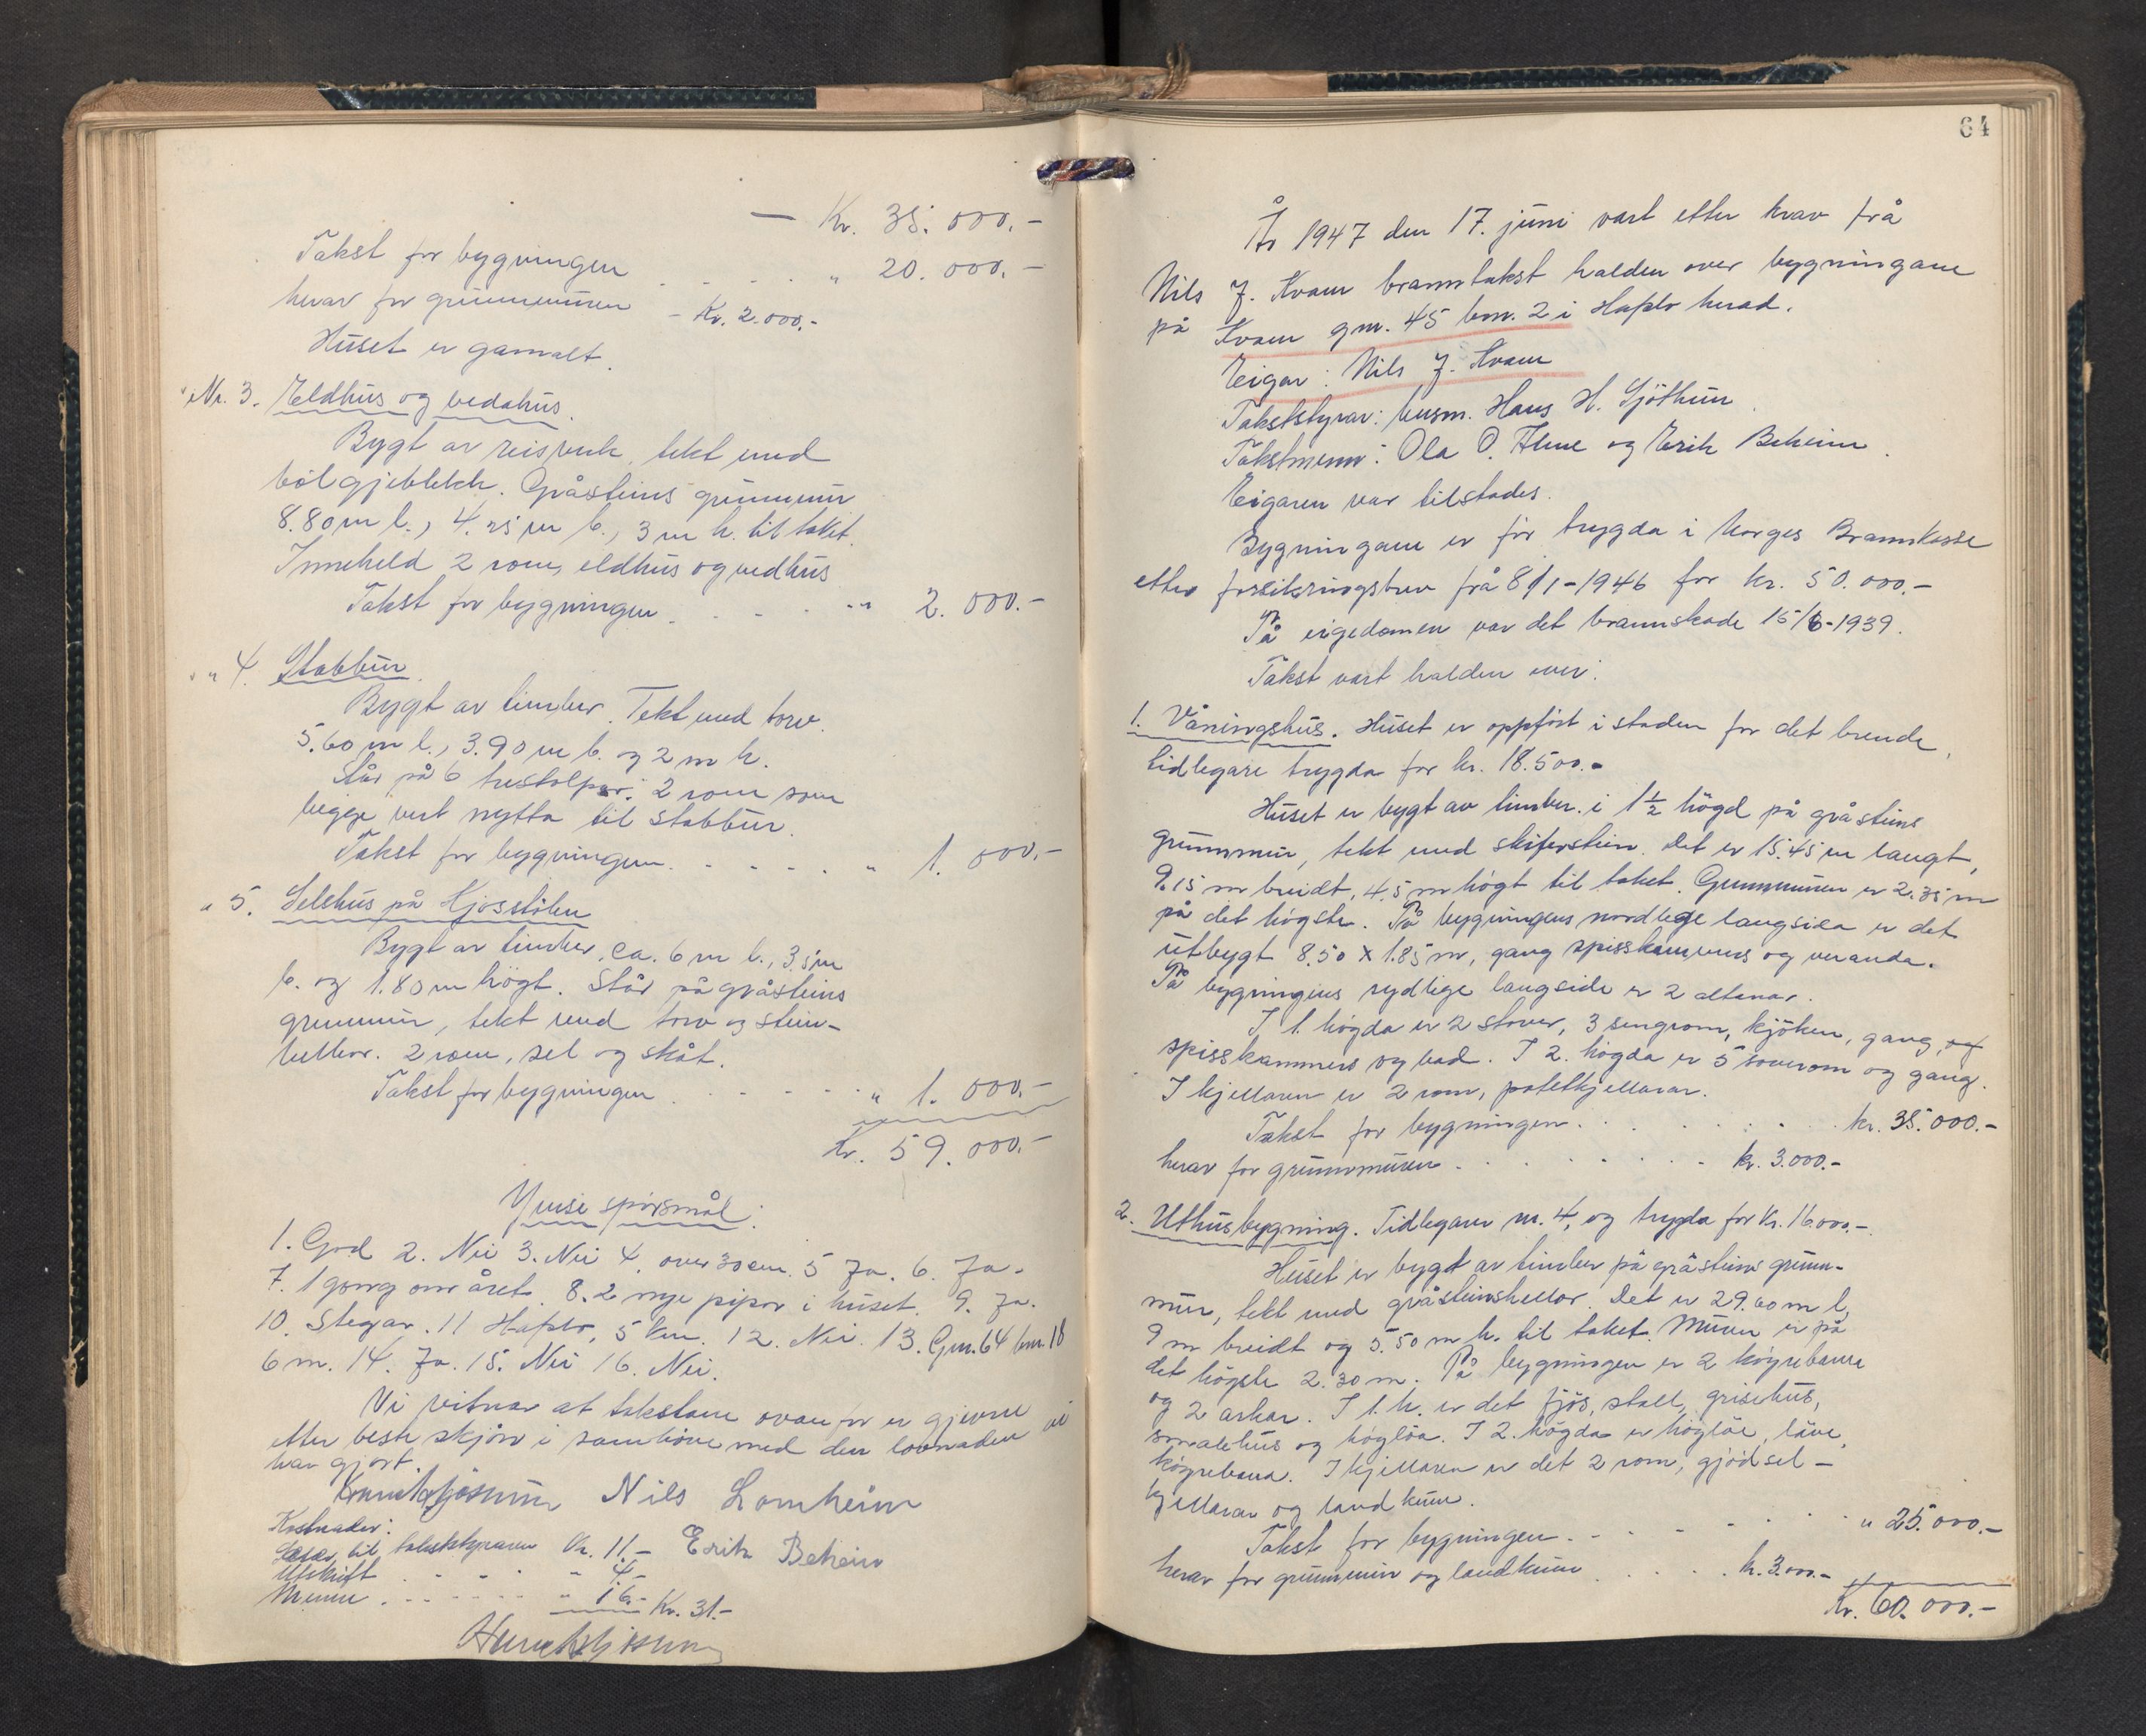 — Kr. 35.000.-
Takst for bygningen . . . . " 20.000.-
herav for grunnmuren - Kr. 2.000.-
Huset er gamalt.
" Nr. 3. Eldhus og vedahus.
Bygt av reisverk, tekt med
bølgjeblekk. Gråsteins grunnmur
8.80 m l., 4.25 m b., 3 m h. til taket.
Inneheld 2 rom, eldhus og vedhus
Takst for bygningen . . . . " 2.000.-
" " 4. Stabbur.
Bygt av timber. Tekt med torv.
5.60 m l., 3.90 m b. og 2 m h.
Står på 6 trestolpar. 2 rom som
begge vert nytta til stabbur.
Takst for bygningen . . . . . " 1.000.-
" 5. Selshus på Kjosstölen
Bygt av timber, ca. 6 m l., 3.5 m
b. og 1.80 m högt. Står på gråsteins
grunnmur, tekt med torv og stein-
hellor. 2 rom, sel og skåt.
Takst for bygningen . . . . . " 1.000.-
Kr. 59.000.-
Ymse spörsmål:
1. God 2. Nei 3. Nei 4. over 30 cm. 5 Ja. 6. Ja.
7. 1 gong om året. 8. 2 nye pipor i huset. 9. Ja.
10. Stegar. 11 Hafslo, 5 km. 12. Nei. 13. Gm. 64 bm. 18
6 m. 14. Ja. 15. Nei 16. Nei.
Vi vitnar at takstane ovanfor er gjevne
etter beste skjön i samhöve med den lovnaden vi
har gjort.
Nils Lomheim
Kostnader:
til takststyraren Kr. 11.- Erik Beheim
Utskrift . . . . " 4.-
Menn . . . . . " 16.- Kr. 31.-
64
År 1947 den 17. juni vart etter krav frå
Nils J. Kvam branntakst halden over bygningane
på Kvam gnr. 45 bnr. 2 i Hafslo herad.
Eigar: Nils J. Kvam
Takststyrar: busm. Hans H. Sjöthun.
Takstmenn: Ola O. Alme og Erik Beheim.
Eigaren var tilstades.
Bygningane er för trygda i Norges Brannkasse
etter forsikringsbrev frå 8/1-1946 for kr. 50.000.-
På eigedomen var det brannskade 15/6-1939.
Takst vart halden over:
1. Våningshus. Huset er oppfört i staden for det brende,
tidlegare trygda for kr. 18.500.-
Huset er bygt av timber i 1½ högd på gråsteins
grunnmur, tekt med skiferstein. Det er 15.45 m langt,
9.15 m breidt, 4.5 m högt til taket. Grunnmuren er 2.35 m
på det högste. På bygningens nordlege langsida er det
utbygt 8.50 x 1.85 m, gang spisskammers og veranda.
På bygningens sydlige langside er 2 altanar.
I 1. högda er 2 stover, 3 sengrom, kjöken, gang, og
spisskammers og bad. I 2. högda er 5 soverom og gang.
I kjellaren er 2 rom, potetkjellarar.
Takst for bygningen . . . . . . . kr. 35.000.-
herav for grunnmuren . . . . . . . kr. 3.000.-
2. Uthusbygning. Tidlegare nr. 4, og trygda for kr. 16.000.-
Huset er bygt av timber på gråsteins grunn-
mur, tekt med gråsteinshellor. Det er 29.60 m l,
9 m breidt og 5.50 m h. til taket. Muren er på
det högste 2.30 m. På bygningen er 2 köyrebruer
og 2 arkar. I 1. h. er det fjös, stall, grisehus,
smalehus og höylöa. I 2. högda er höylöe, låve,
köyrebana. I kjellaren er det 2 rom, gjödsel-
kjellarar og landkum.
Takst for bygningen . . . . . . . " 25.000.-
herav for grunnmur og landkum . . . . kr. 3.000.-
Kr. 60.000.-